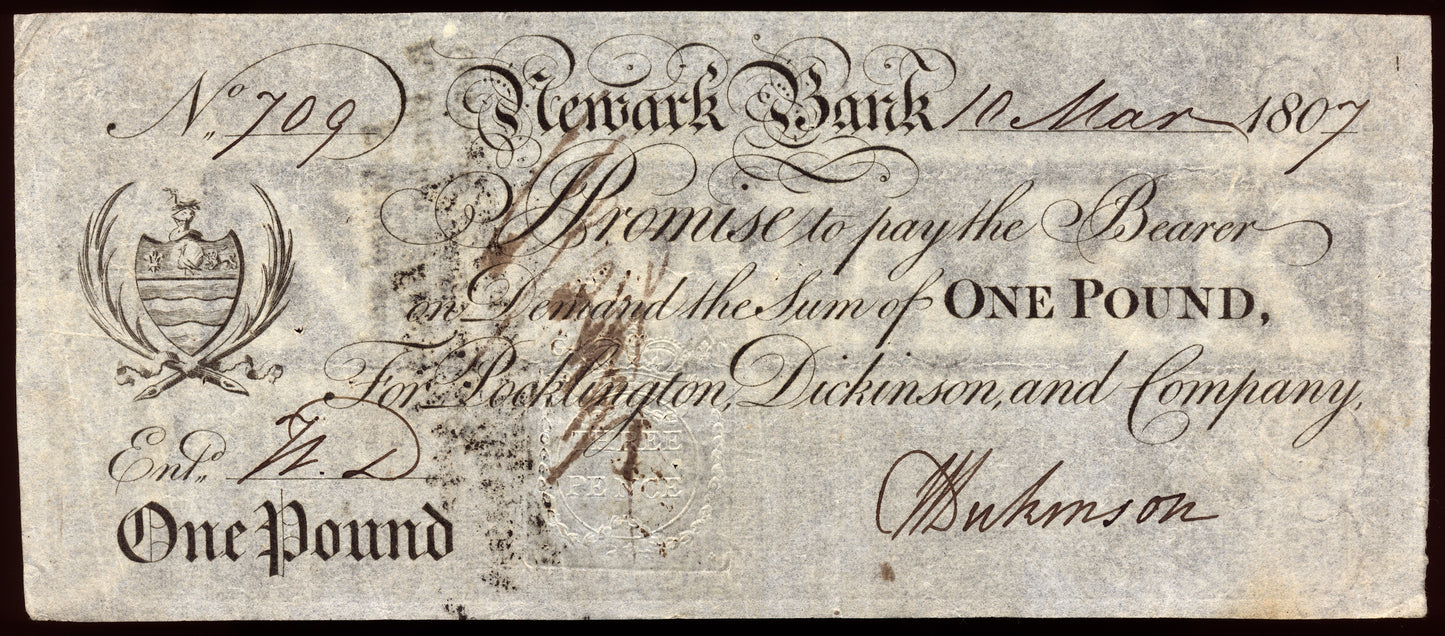 No. 709 Newark Bank 10 Mar 1807
I Promise to pay the Bearer
on Demand the Sum of ONE POUND,
For Pocklington, Dickinson, and Company,
THREE
PENCE
Entd. W. D
WDickinson
One Pound